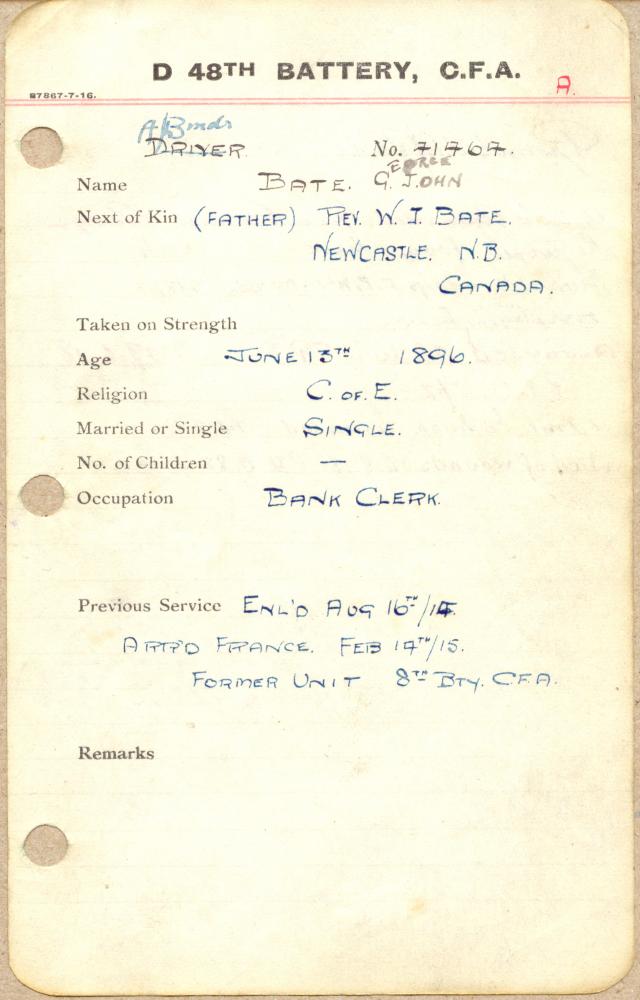 D 48TH BATTERY, C.F.A.
A.
87867-7-16.
A/Bmdr
DRIVER No. 41767.
EORGE
Name BATE. G. JOHN
Next of Kin (FATHER) REV. W. I. BATE.
NEWCASTLE. N.B.
CANADA.
Taken on Strength
Age JUNE 13TH 1896.
Religion C. OF. E.
Married or Single SINGLE.
No. of Children —
Occupation BANK CLERK.
Previous Service ENL'D AUG 16TH/14.
ARR'D FRANCE. FEB 14TH/15.
FORMER UNIT 8TH BTY. C.F.A.
Remarks